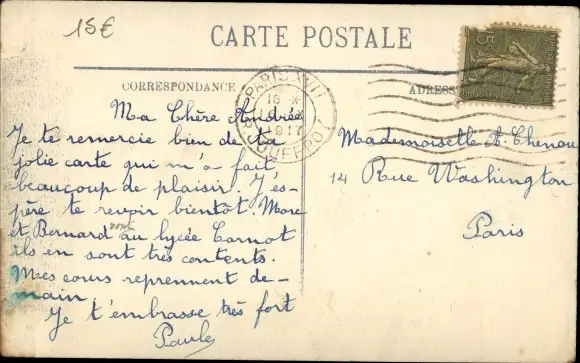 15€
CARTE POSTALE
CORRESPONDANCE
ADRESS
PARIS XVII
16 X
1917
R. JOUFFROY
Ma Chère Andrée
Je te remercie bien de ta
jolie carte qui m'a fait
beaucoup de plaisir. J'es-
père te revoir bientôt. Marc
et Bernard vont au lycée Carnot
ils en sont très contents.
Mes cours reprennent de-
main.
Je t'embrasse très fort
Paule
Mademoiselle A. Chenau
14 Rue Washington
Paris